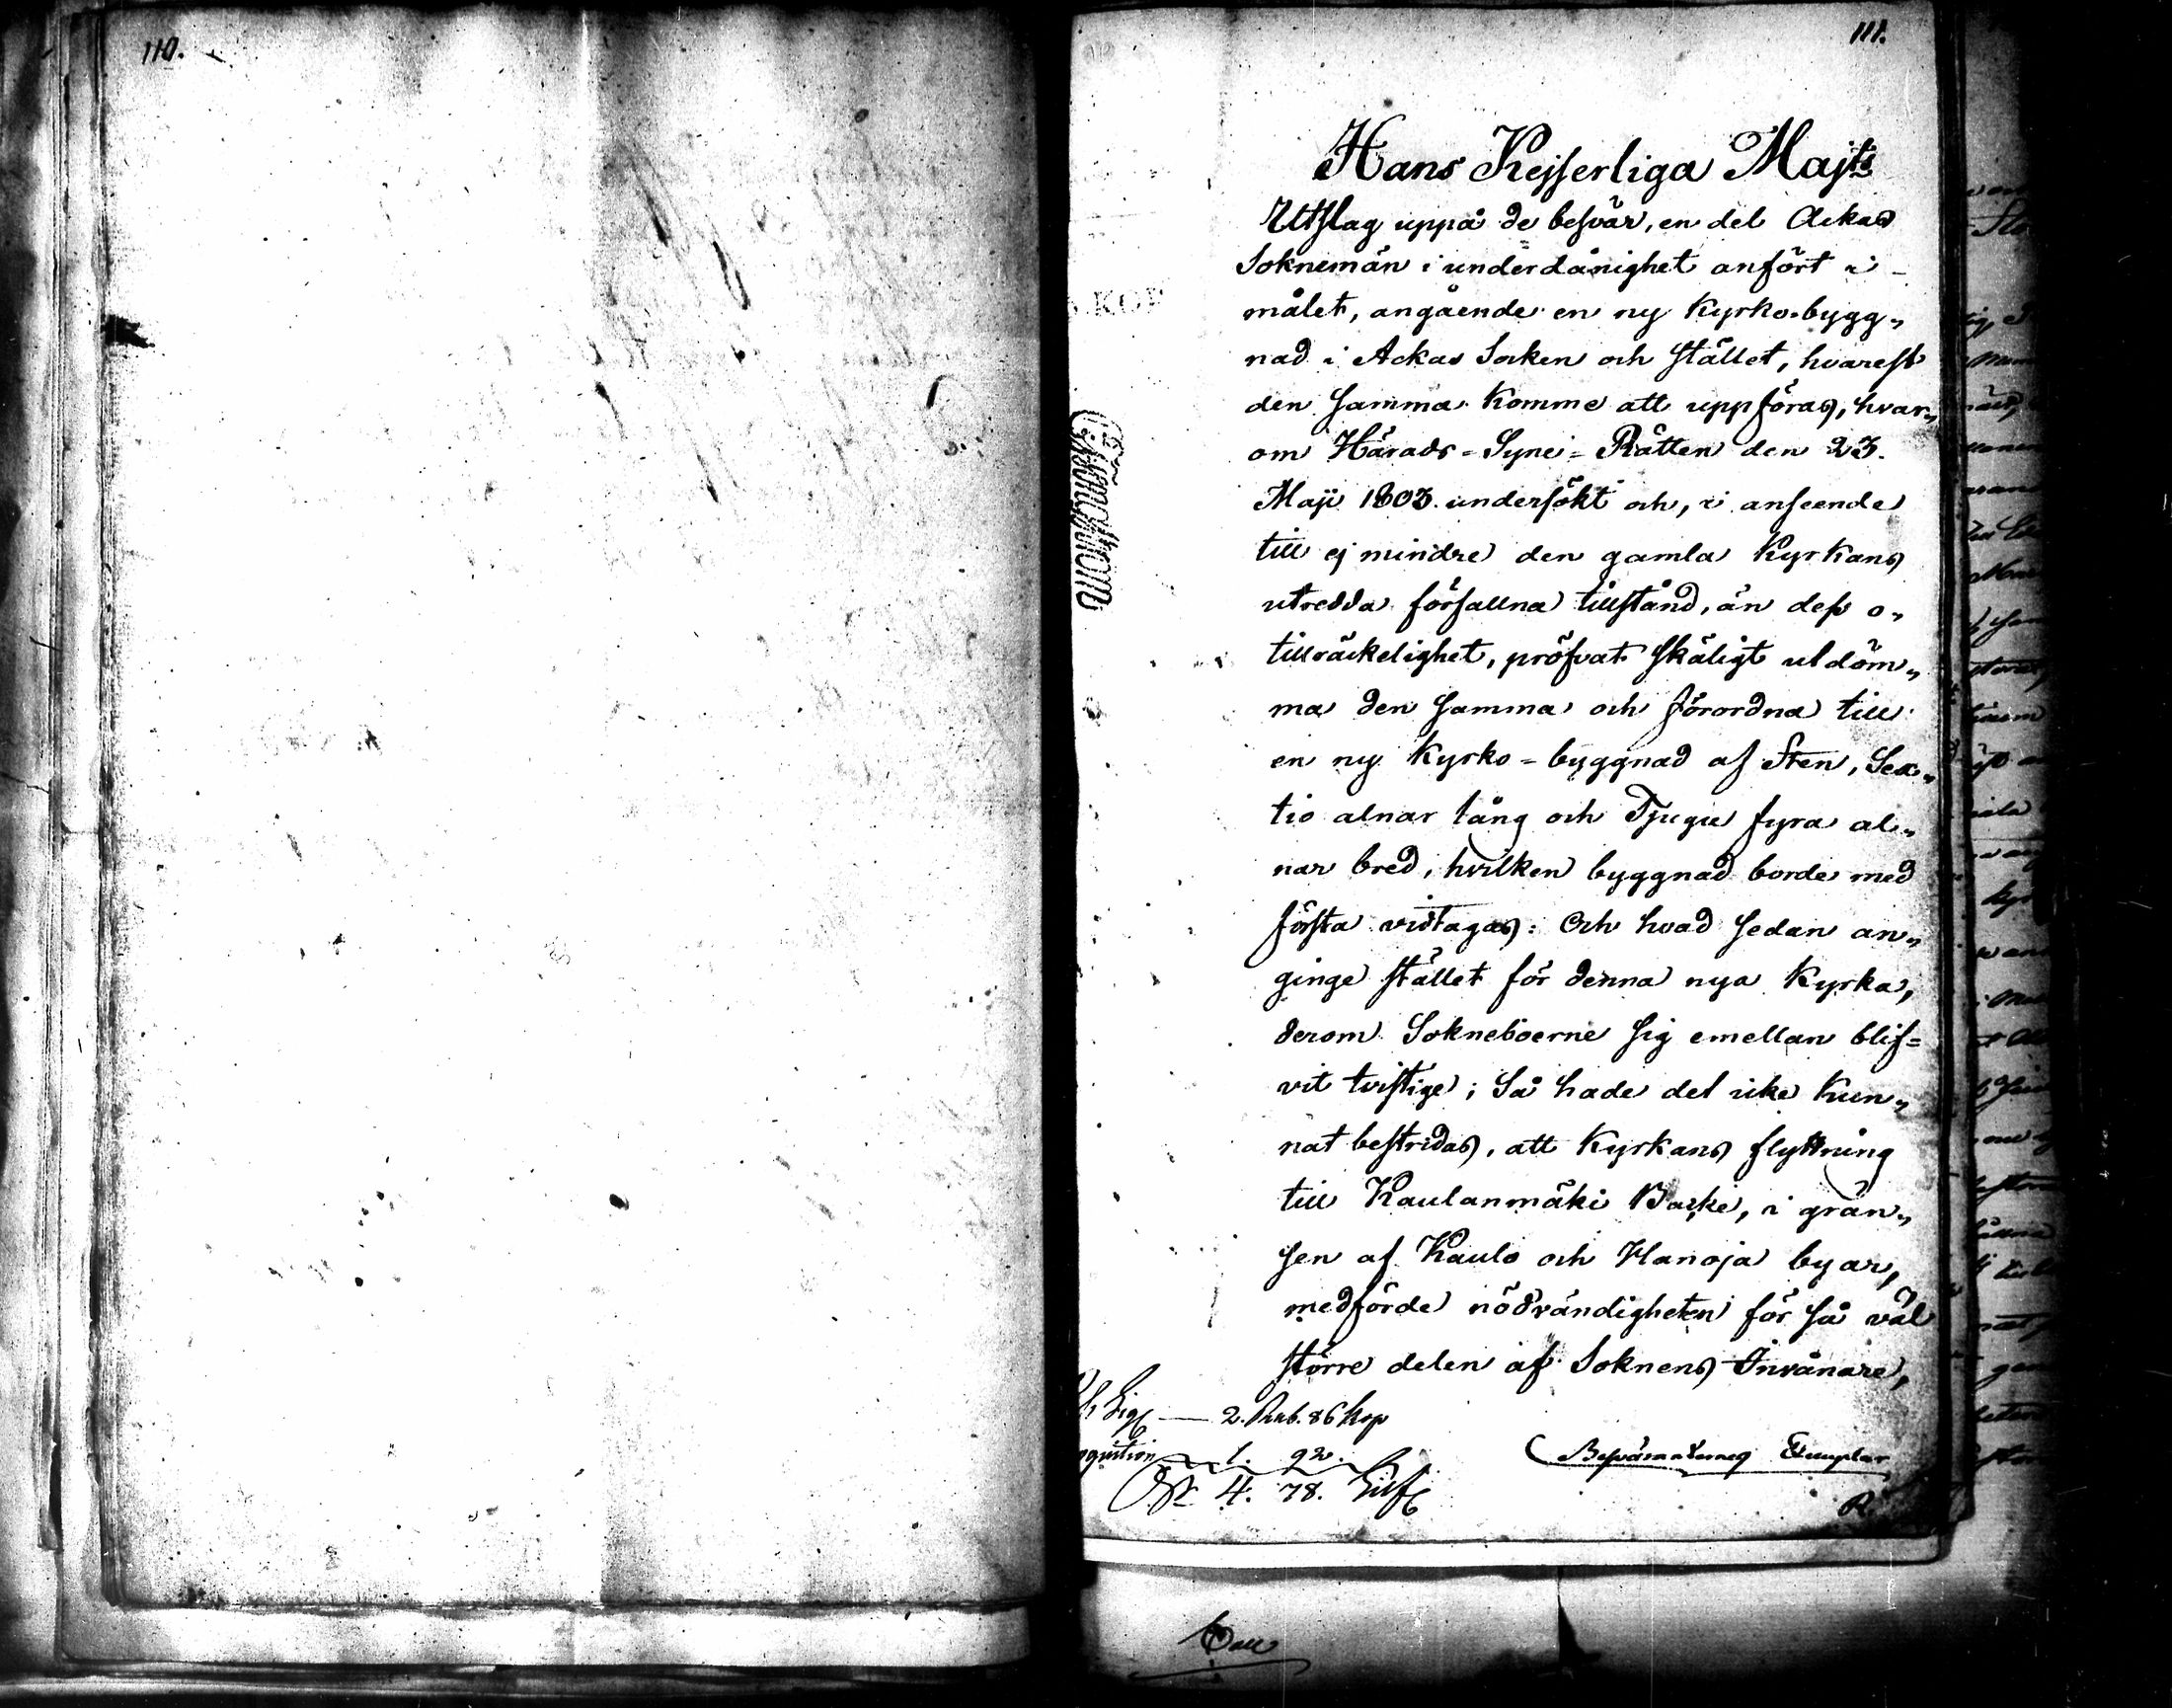 110.
111.
Hans Kejserliga Majts
Utslag uppå de besvär, en del Ackas
Soknemän i underdånighet anfört i
målet, angående en ny Kyrko-bygg„
nad i Ackas Socken och stället, hvarest
den samma komme att uppföras, hvar„
om Härads-Syne-Rätten den 23.
Maji 1803. undersökt och, i anseende
till ej mindre den gamla Kyrkans
utredda förfallna tillstånd, än dess o„
tillräckelighet, pröfvat skäligt utdöm„
ma den samma och förordna till
en ny Kyrko-byggnad af Sten, Sex„
tio alnar lång och Tjugu fyra al„
nar bred, hvilken byggnad borde med
första vidtagas: Och hvad sedan an„
ginge stället för denna nya Kyrka,
derom Sokneboerne sig emellan blif=
vit tvistige; Så hade det icke kun„
nat bestridas, att Kyrkans flyttning
till Kaulanmäki Backe, i grän„
sen af Kaulo och Hanoja byar,
medförde nödvändigheten för så väl
större delen af Soknens Invånare,
2. Rub. 86 kop
1. 92.
4. 78.
Besvärandernes Exemplar
R.